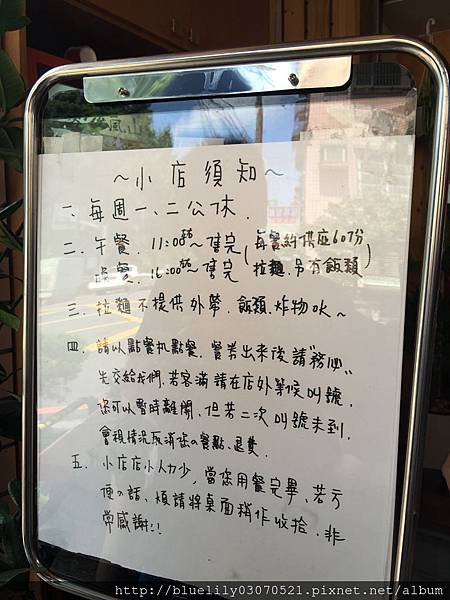 ~小店須知~
一、每週一、二公休.
二、午餐、11:00~售完(每餐約供應60份
晚餐、16:00~售完 拉麵.另有飯類)
三、拉麵不提供外帶.飯類.炸物OK~
四、請以點餐机點餐.餐券出來後請"務必"
先交給我們.若客滿請在店外等候叫號.
您可以暫時離開.但若二次叫號未到.
會視情況取消您の餐點.退費.
五、小店店小人力少,當您用餐完畢、若方
便の話、煩請將桌面稍作收拾.非
常感謝!!
http://bluelily03070521.pixnet.net/album